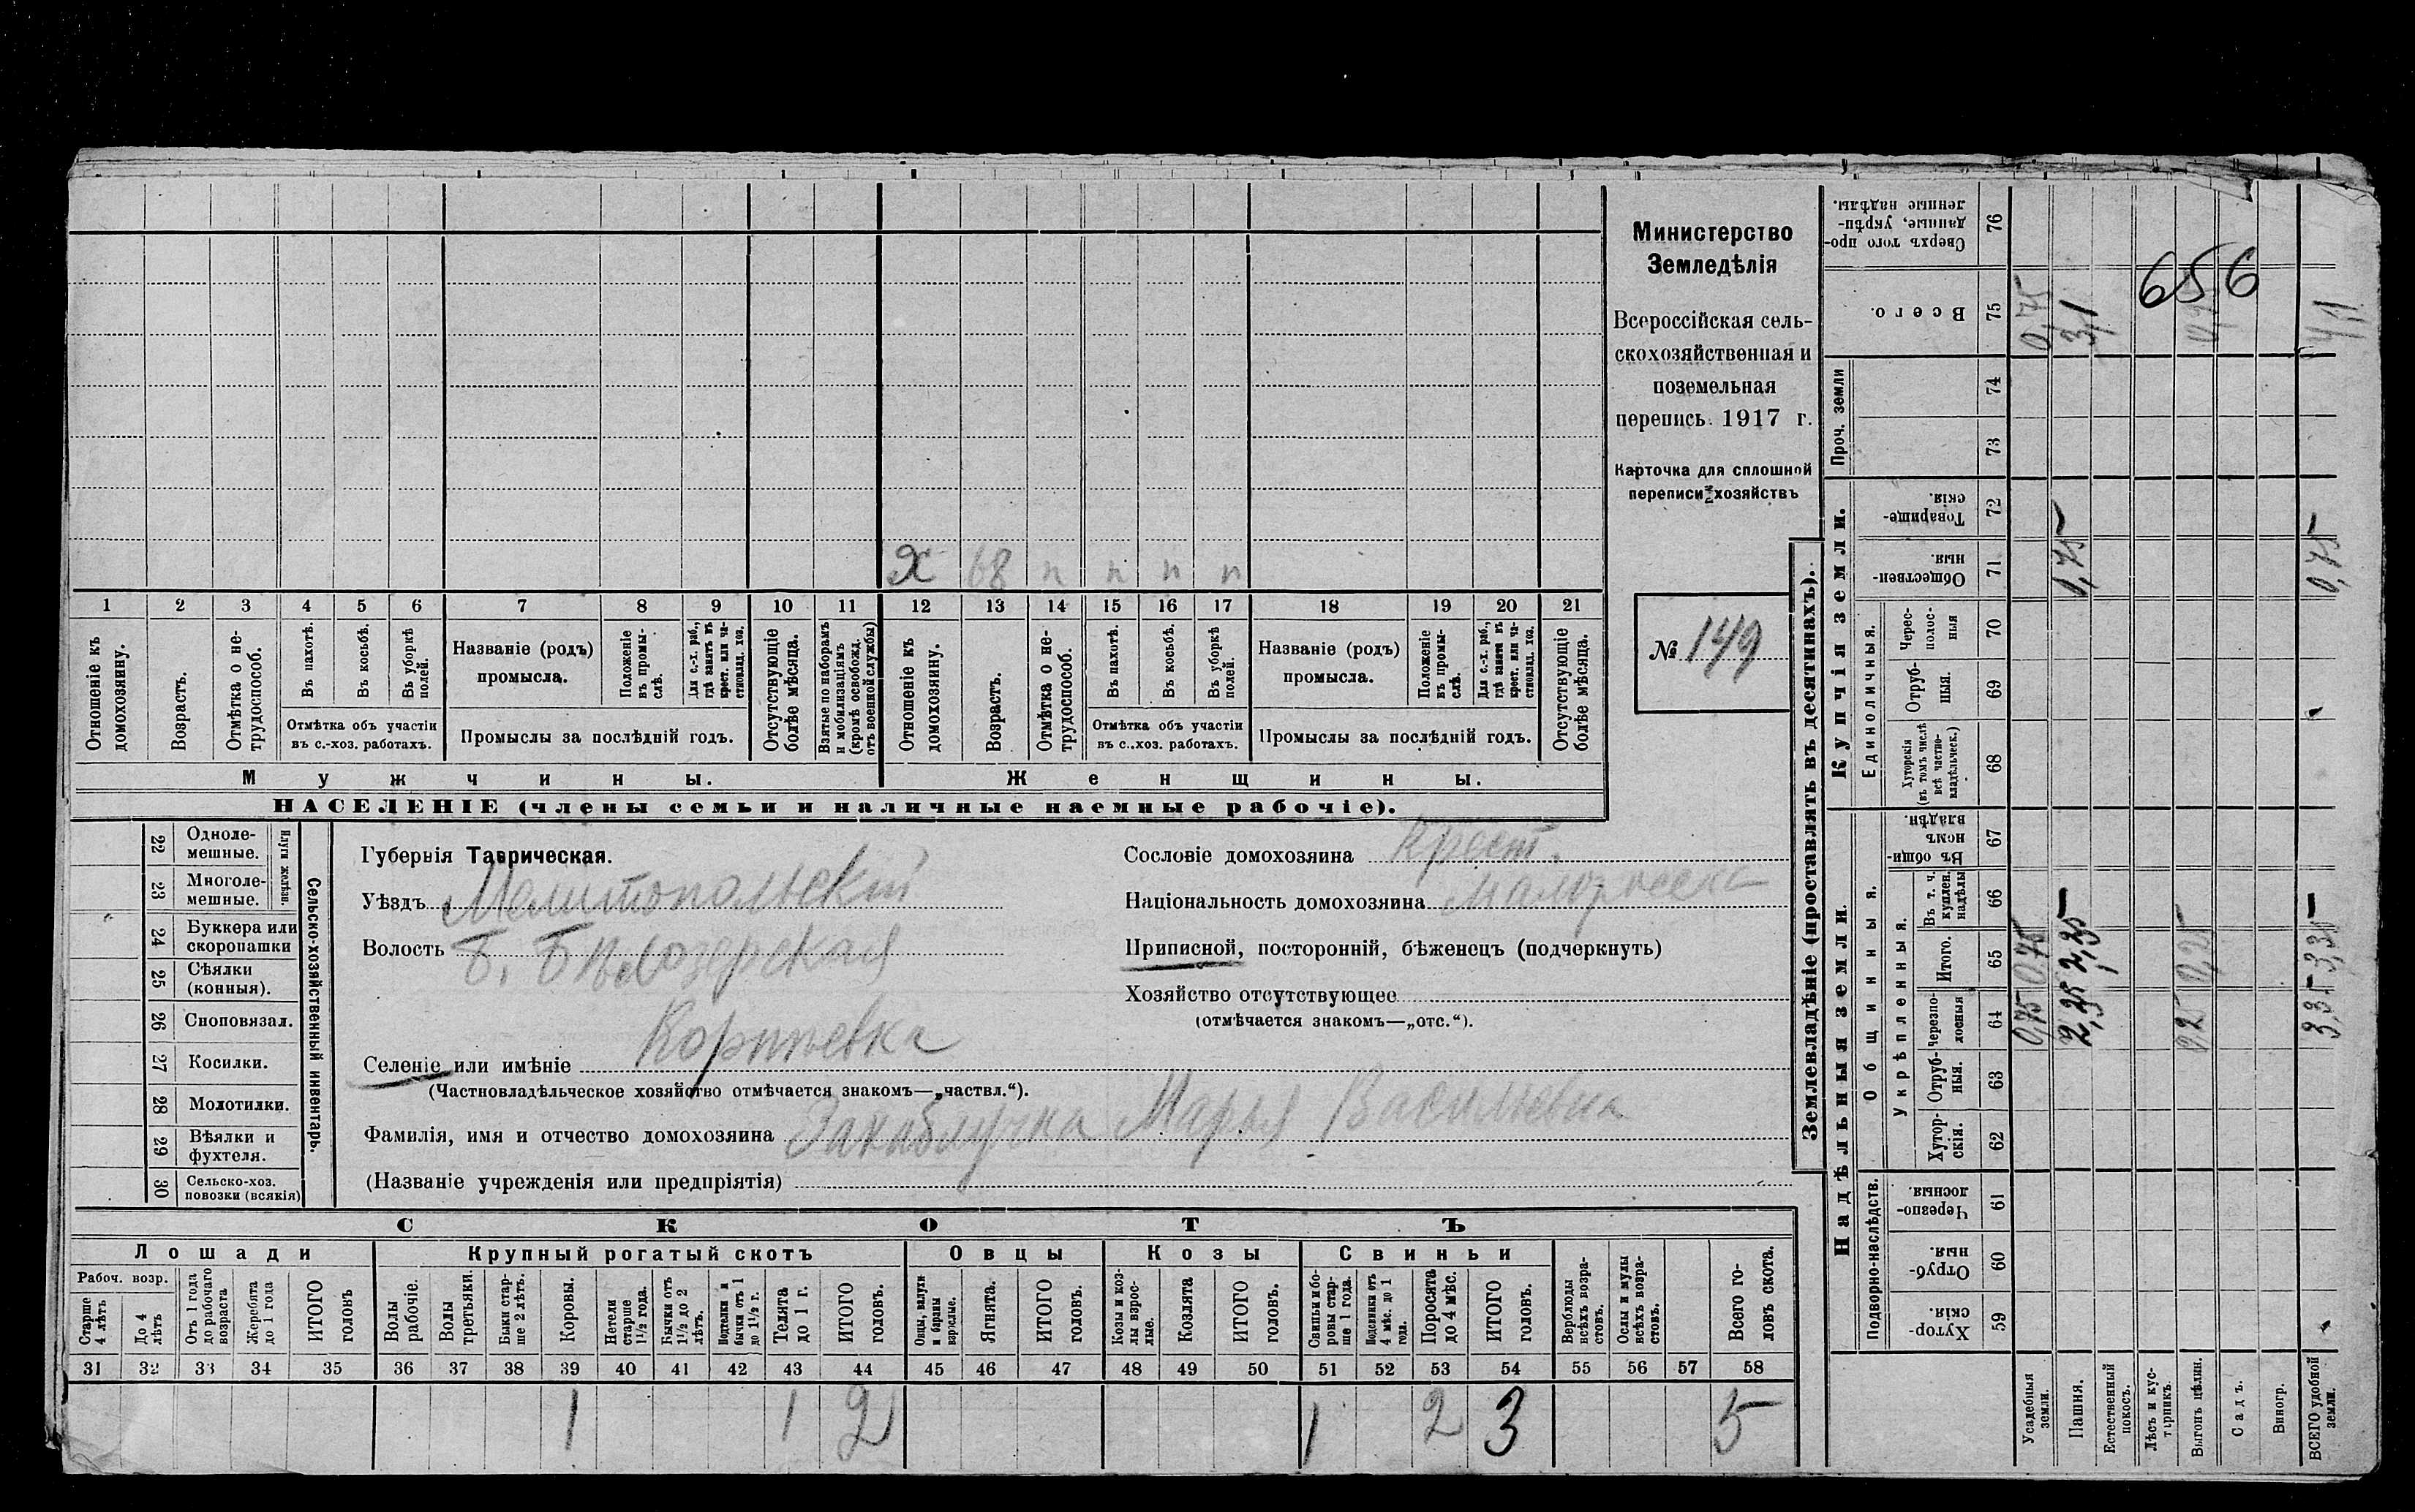 Министерство
Земледѣлія
Всероссійская сель-
скохозяйственная и
поземельная
перепись 1917 г.
Карточка для сплошной
переписи хозяйствъ
№ 149
656
Х 68 п п п п
1 2 3 4 5 6 7 8 9 10 11 12 13 14 15 16 17 18 19 20 21
Отношеніе къ домохозяину.
Возрастъ.
Отмѣтка о не-трудоспособ.
Въ пахотѣ.
Въ косьбѣ.
Въ уборкѣ полей.
Отмѣтка объ участіи
въ с.-хоз. работахъ.
Названіе (родъ)
промысла.
Положеніе въ промы-слѣ.
Для с.-х. раб., гдѣ занятъ въ крест. или ча-стновлад. хоз.
Промыслы за послѣдній годъ.
Отсутствующіе болѣе мѣсяца.
Взятые по наборамъ и мобилизаціямъ (кромѣ освобожд. отъ военной службы)
Отношеніе къ домохозяину.
Возрастъ.
Отмѣтка о не-трудоспособ.
Въ пахотѣ.
Въ косьбѣ.
Въ уборкѣ полей.
Отмѣтка объ участіи
въ с.-хоз. работахъ.
Названіе (родъ)
промысла.
Положеніе въ промы-слѣ.
Для с.-х. раб., гдѣ занята въ крест. или ча-стновлад. хоз.
Промыслы за послѣдній годъ.
Отсутствующіе болѣе мѣсяца.
Мужчины. Женщины.
НАСЕЛЕНІЕ (члены семьи и наличные наемные рабочіе).
22 Одноле-мешные.
23 Многоле-мешные.
Плуги желѣзн.
24 Буккера или скоропашки
25 Сѣялки (конныя).
26 Сноповязал.
27 Косилки.
28 Молотилки.
29 Вѣялки и фухтеля.
30 Сельско-хоз. повозки (всякія)
Сельско-хозяйственный инвентарь.
Губернія Таврическая.
Уѣздъ Мелитопольскій
Волость Б. Бѣлозерская
Селеніе или имѣніе Корнѣевка
(Частновладѣльческое хозяйство отмѣчается знакомъ—„частвл.“).
Сословіе домохозяина Крест.
Національность домохозяина Малоросска
Приписной, посторонній, бѣженецъ (подчеркнуть)
Хозяйство отсутствующее
(отмѣчается знакомъ—„отс.“).
Фамилія, имя и отчество домохозяина Закаблучка Марья Васильевна
(Названіе учрежденія или предпріятія)
СКОТЪ
Лошади Крупный рогатый скотъ Овцы Козы Свиньи
Рабоч. возр.
Старше 4 лѣтъ
До 4 лѣтъ
Отъ 1 года до рабочаго возраста
Жеребята до 1 года
ИТОГО головъ
Волы рабочіе.
Волы третьяки.
Быки стар-ше 2 лѣтъ.
Коровы.
Нетели старше 1½ года.
Бычки отъ 1½ до 2 лѣтъ.
Подтелки и бычки отъ 1 до 1½ г.
Телята до 1 г.
ИТОГО головъ.
Овцы, валухи и бараны взрослые.
Ягнята.
ИТОГО головъ.
Козы и коз-лы взрос-лые.
Козлята
ИТОГО головъ.
Свиньи и бо-ровы стар-ше 1 года.
Подсвинки отъ 4 мѣс. до 1 года.
Поросята до 4 мѣс.
ИТОГО головъ.
Верблюды всѣхъ возра-стовъ.
Ослы и мулы всѣхъ возра-стовъ.
Всего го-ловъ скота.
31 32 33 34 35 36 37 38 39 40 41 42 43 44 45 46 47 48 49 50 51 52 53 54 55 56 57 58
1 1 2 1 2 3 5
Землевладѣніе (проставлять въ десятинахъ).
Надѣльныя земли.
Купчія земли.
Проч. земли
Общинныя.
Укрѣпленныя.
Подворно-наслѣдств.
Единоличныя.
Сверхъ того про-данные, укрѣп-ленные надѣлы. 76
Всего. 75 0,75 3,1 4,1
74
73
Товарище-скія. 72
Обществен-ныя 71 0,75 0,75
Черес-полос-ныя 70
Отруб-ныя. 69
Хуторскія (въ томъ числѣ всѣ частно-владѣльческ.) 68
Въ общи-номъ владѣн. 67
Въ т. ч. куплен. надѣлы 66
Итого. 65 0,75 2,35 0,25 3,35
Черезпо-лосныя 64 0,75 2,35 0,25 3,35
Отруб-ныя. 63
Хутор-скія. 62
Черезпо-лосныя. 61
Отруб-ныя. 60
Хутор-скія. 59
Усадебныя земли.
Пашня.
Естественный покосъ.
Лѣсъ и кус-тарникъ.
Выгонъ цѣлин.
Садъ.
Виногр.
ВСЕГО удобной земли.